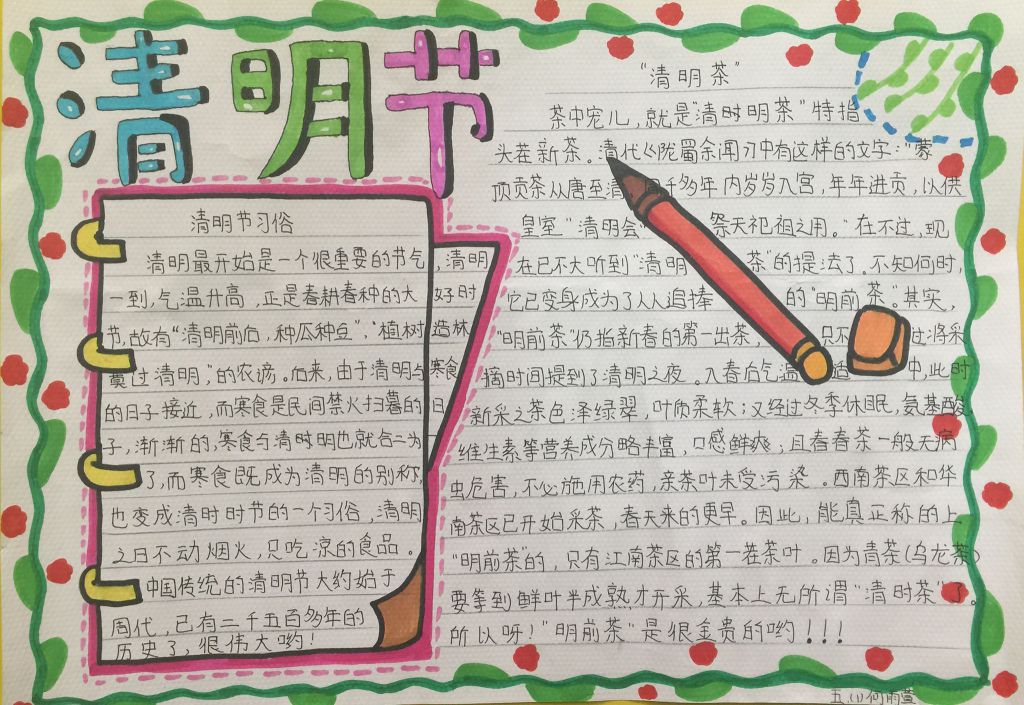 清明节
清明节习俗
清明最开始是一个很重要的节气，清明
一到，气温升高，正是春耕春种的大好时
节，故有“清明前后，种瓜种豆”，“植树造林
莫过清明，”的农谚。后来，由于清明与寒食
的日子接近，而寒食是民间禁火扫墓的日
子，渐渐的，寒食与清时明也就合二为一
了，而寒食既成为清明的别称，
也变成清时时节的一个习俗，清明
之日不动烟火，只吃凉的食品。
中国传统的清明节大约始于
周代，已有二千五百多年的
历史了，很伟大哟！
“清明茶”
茶中宠儿，就是“清时明茶”特指
头茬新茶。清代陇蜀余闻刁中有这样的文字：“蒙
顶贡茶从唐至清，千多年内岁岁入宫，年年进贡，以供
皇室“清明会”祭天祀祖之用。”在不过，现
在已不大听到“清明茶”的提法了。不知何时，
它已变身成为了人人追捧的“明前茶”。其实，
“明前茶”仍指新春的第一出茶，只不过将采
摘时间提到了清明之夜。入春后气温中，此时
新采之茶色泽绿翠，叶质柔软；又经过冬季休眠，氨基酸
维生素等营养成分略丰富，口感鲜爽；且春春茶一般无病
虫危害，不必施用农药，亲茶叶未受污染。西南茶区和华
南茶区已开始采茶，春天来的更早。因此，能真正称的上
“明前茶”的，只有江南茶区的第一茬茶叶。因为青茶（乌龙茶）
要等到鲜叶半成熟才开采，基本上无所谓“清时茶”了。
所以呀！“明前茶”是很金贵的哟！！！
五、（1）何雨萱